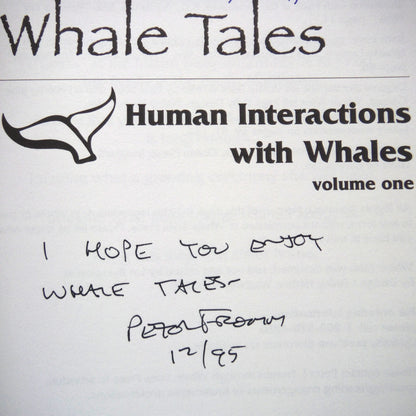 Whale Tales
Human Interactions
with Whales
volume one
I HOPE YOU ENJOY
WHALE TALES-
PETER FROMM
12/95